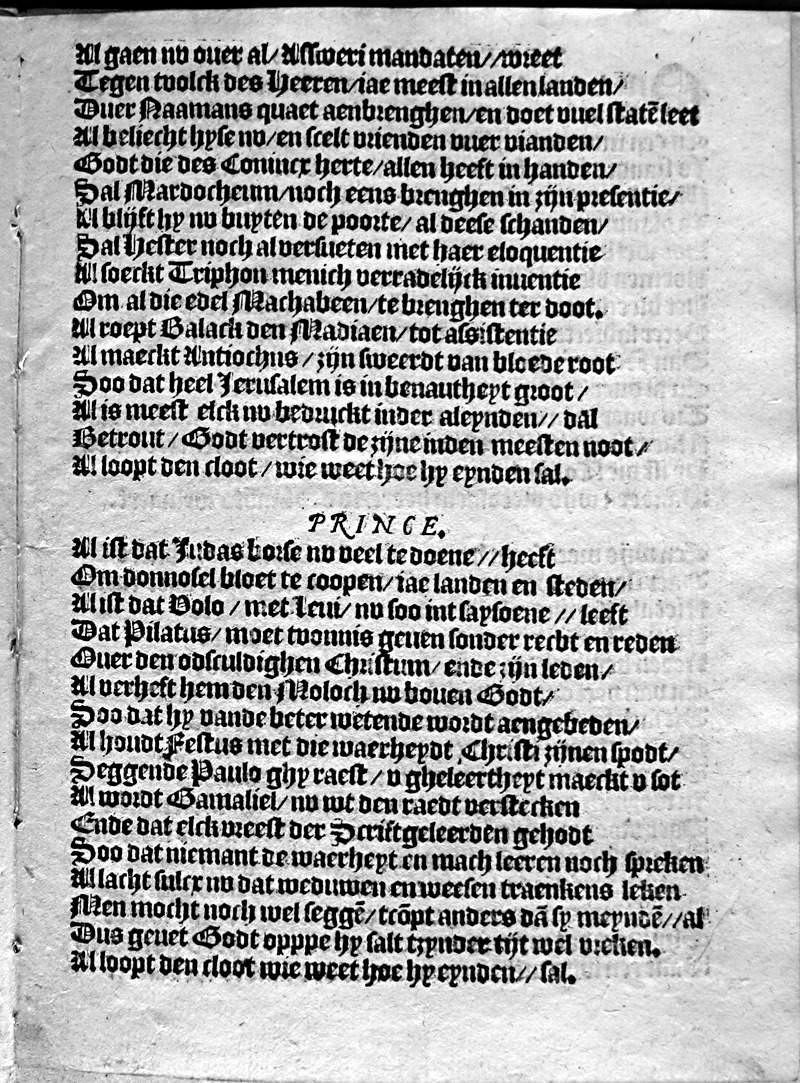 Al gaen nv ouer al/ Assweri mandaten//wreet
Tegen tvolck des Heeren/iae meest in allen landen/
Duer Naamans quaet aenbrenghen/en doet vuel statē leet
Al beliecht hyse nv/en scelt vrienden vuer vianden/
Godt die des Conincx herte/allen heeft in handen/
Sal Mardocheum/noch eens brenghen in zijn presentie/
Al blijft hy nv buyten de poorte/ al deese schanden/
Sal Hester noch al versueten met haer eloquentie
Al soeckt Triphon menich verradelijck inuentie
Om al die edel Machabeen/te brenghen ter doot.
Al roept Balack den Madiaen/tot assistentie
Al maeckt Antiochus /zijn sweerdt van bloede root
Soo dat heel Jerusalem is in benautheyt groot /
Al is meest elck nv bedruckt inder aleynden// dal
Betrout / Godt vertrost de zijne inden meesten noot/
Al loopt den cloot /wie weet hoe hy eynden sal.
PRINCE.
Al ist dat Judas borse nv veel te doene //heeft
Om donnosel bloet te coopen/iae landen en steden/
Al ist dat Volo / met Leui/ nv soo int saysoene // leeft
Dat Pilatus/ moet tvonnis geuen sonder recht en reden
Ouer den odsculdighen Christum/ ende zijn leden/
Al verheft hem den Moloch nv bouen Godt/
Soo dat hy vande beter wetende wordt aengebeden/
Al houdt Festus met die waerheydt Christi zijnen spodt/
Seggende Paulo ghy raest / v gheleertheyt maeckt v sot
Al wordt Gamaliel/ nv wt den raedt verstecken
Ende dat elck vreest der Scriftgeleerden gehodt
Soo dat niemant de waerheyt en mach leeren noch spreken
Al lacht sulcx nv dat weduwen en weesen traenkens leken
Men mocht noch wel seggē/ tcōpt anders dā sy meyndē//al
Dus geuet Godt opppe hy salt tzynder tijt wel vreken.
Al loopt den cloot wie weet hoe hy eynden// sal.